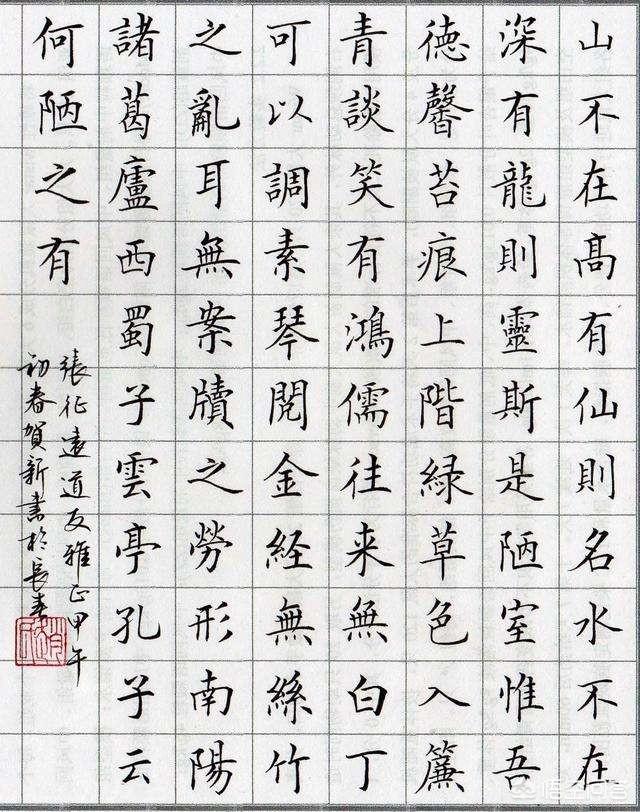 山不在高有仙則名水不在
深有龍則靈斯是陋室惟吾
德馨苔痕上階緑草色入簾
青談笑有鴻儒往来無白丁
可以調素琴閱金経無絲竹
之亂耳無案牘之勞形南陽
諸葛廬西蜀子雲亭孔子云
何陋之有
張征遠道友雅正甲午
初春賀新書於長春